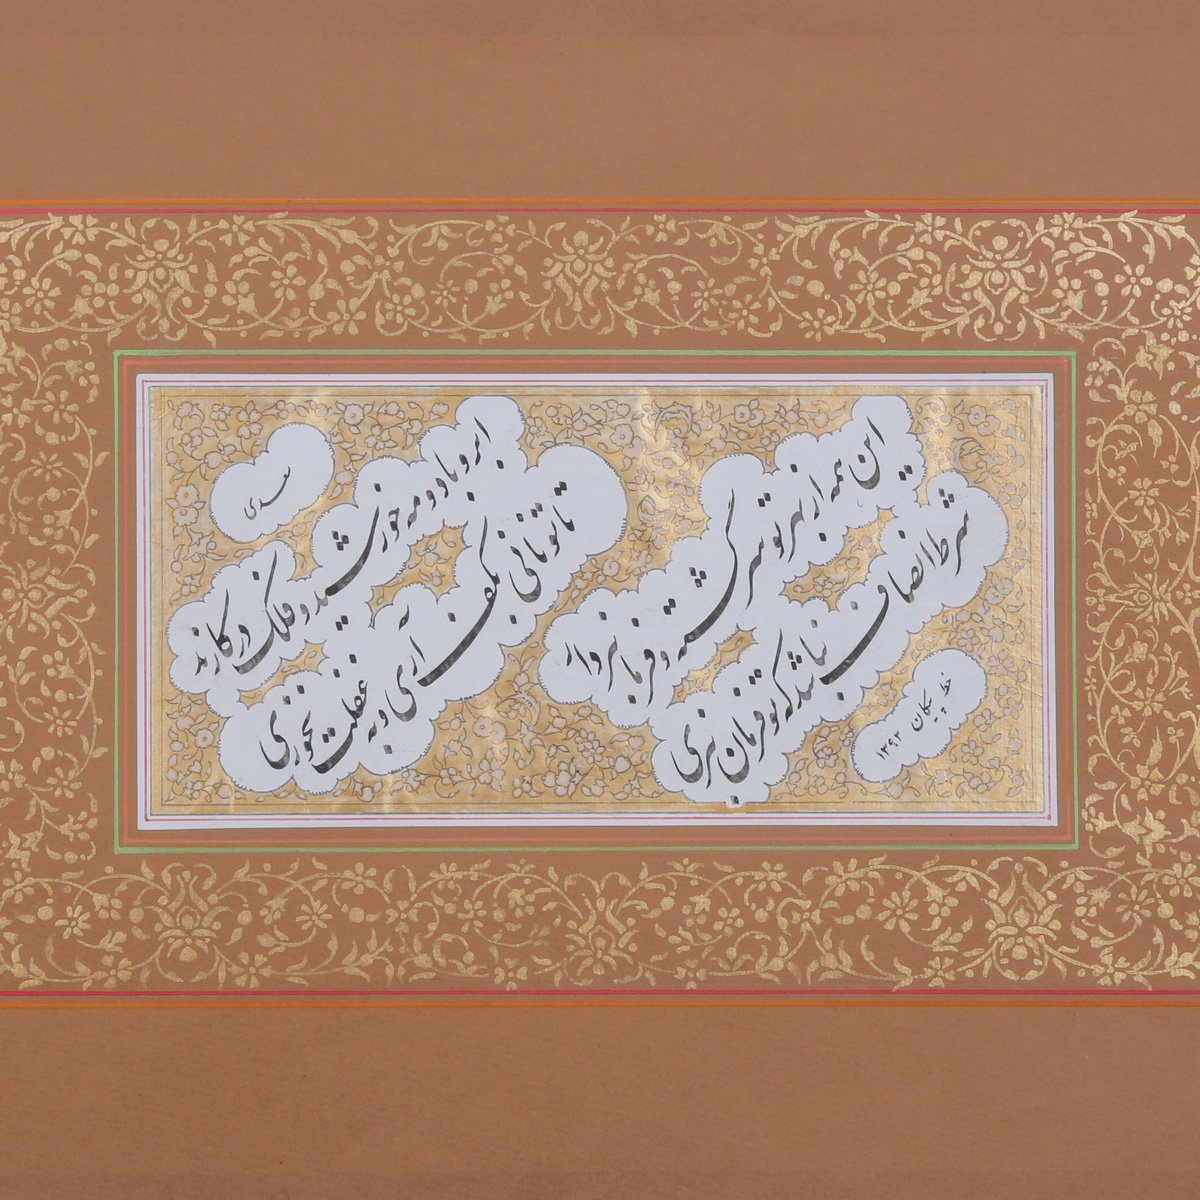 ابر و باد و مه خورشید و فلک در کارند
تا تو نانی بکف آری و به غفلت نخوری
این همه از بهر تو سرگشته و فرمانبردار
شرط انصاف نباشد که تو فرمان نبری
سعدی
خط پیکان ۱۳۹۲